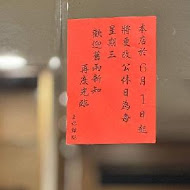 本店於6月1日起
將更改公休日為每
星期三
歡迎舊雨新知
再度光臨